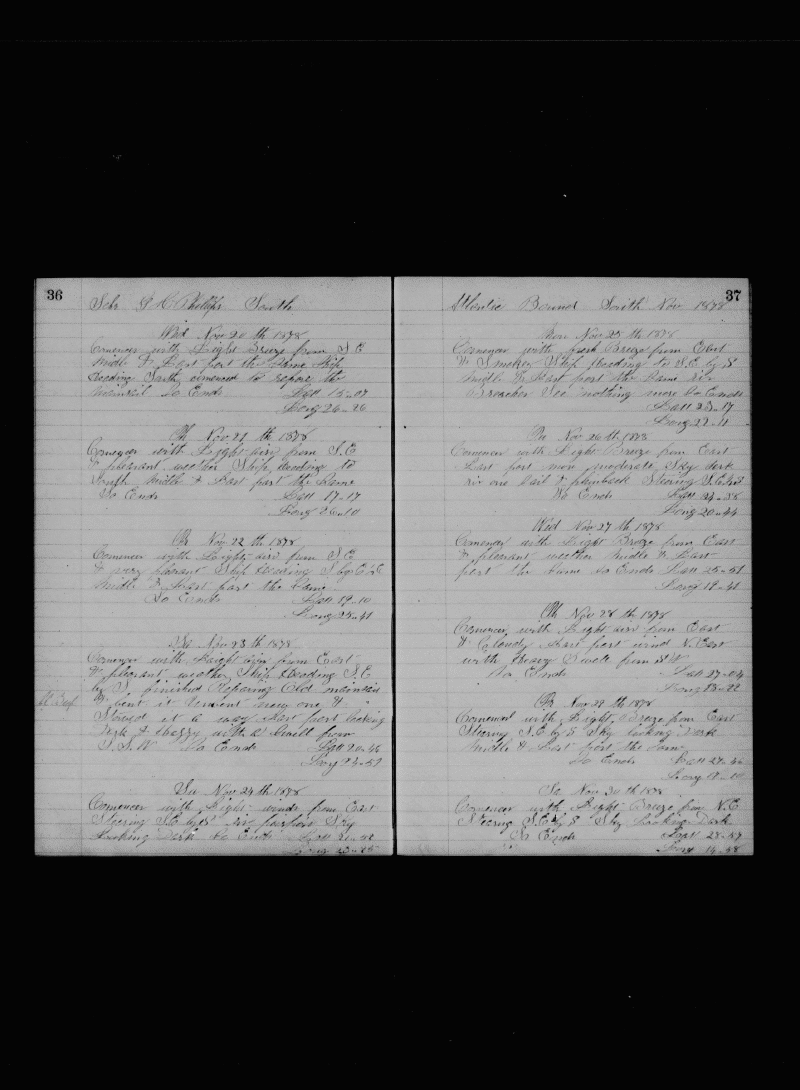 36
Schr G H Phillips South
Wed Nov 20 th 1878
Comences with Light Breeze from S E
Midle & Last part the Same Ship
Heading South comenced to repare the
mainsail So Ends Latt 15-07
Long 26-26
Th Nov 21 th 1878
Comences with Light airs from S.E
& pleasant weather Ship heading to
South Midle & Last part the Same
So Ends Latt 17-17
Long 26-10
Fr Nov 22 th 1878
Comences with Light airs from S E
& very pleasant Ship Stearing S by E 1/2 E
Midle & Last part the Same
So Ends Latt 19-10
Long 25-41
Sa Nov 23 th 1878
Comences with Light airs from East
& pleasant weather Ship heading S E
by S finished Reparing Old mainsail
& bent it Unbent new one &
Stowed it a way Last part looking
Dark & hazzy with a Swell from
S.S.W So Ends Latt 20-46
Long 24-51
Su Nov 24 th 1878
Comences with Light winds from East
Stearing S.E by S Sky
Looking Dark So Ends Latt 21-42
Long 23-25
37
Atlantic Bound South Nov 1878
Mon Nov 25 th 1878
Comences with fresh Breeze from East
& Smokey Ship heading to S.E. by S
Midle & Last part the Same
See nothing more So Ends
Latt 23-17
Long 22-11
Tu Nov 26 th 1878
Comences with Light Breeze from East
Last part more moderate Sky dark
one Sail Stearing S.E.
So Ends Latt 24-38
Long 20-44
Wed Nov 27 th 1878
Comences with Light Breeze from East
& pleasant weather Midle & Last
part the Same So Ends Latt 25-51
Long 19-41
Th Nov 28 th 1878
Comences with Light airs from East
& Cloudy Last part wind N. East
with Heavy Swell from
So Ends Latt 27-04
Long 18-22
Fr Nov 29 th 1878
Comences with Light Breeze from East
Stearing S.E by S Sky looking Dark
Midle & Last part the Same
So Ends Latt 27-46
Long 18-10
Sa Nov 30 th 1878
Comences with Light Breeze from N.E
Stearing S.E by S Sky Looking Dark
So Ends Latt 28-57
Long 16-58